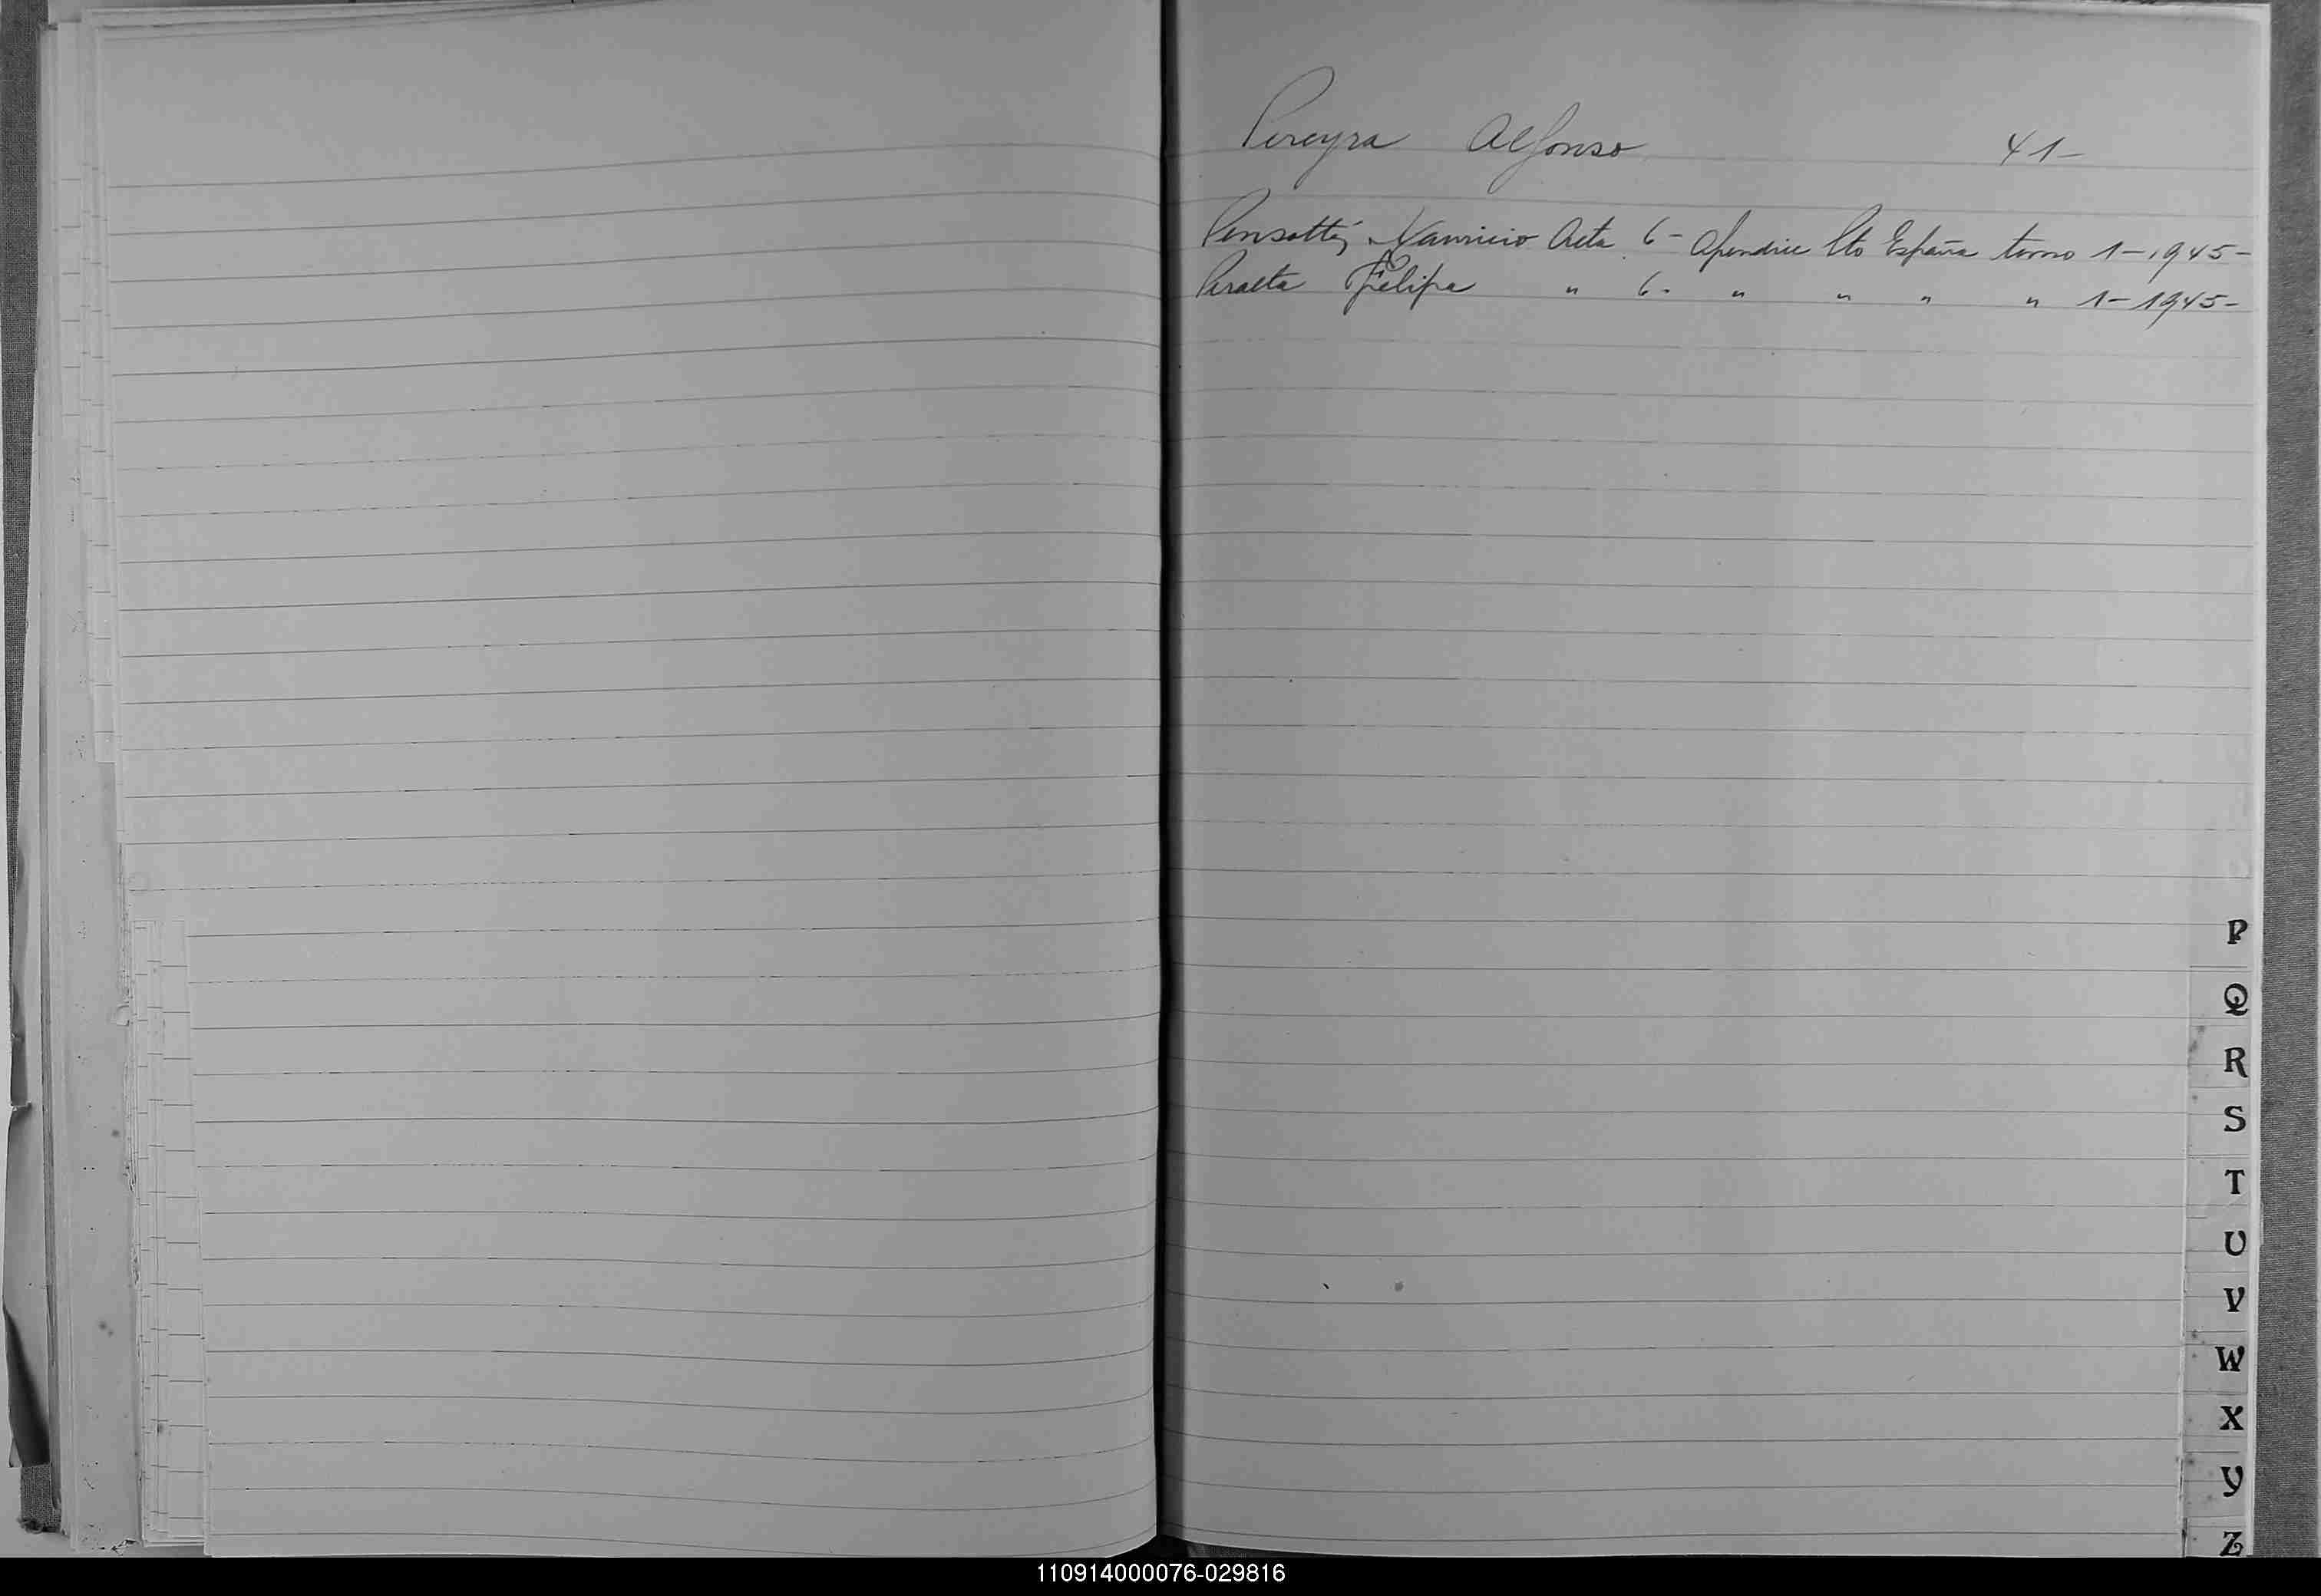 Pereyra Alfonso 41-
Pensotti, Mauricio Acta 6- Apendice Cto España tomo 1-1945-
Peralta Felipa " 6- " " " " 1-1945-
P
Q
R
S
T
U
V
W
X
Y
Z
110914000076-029816